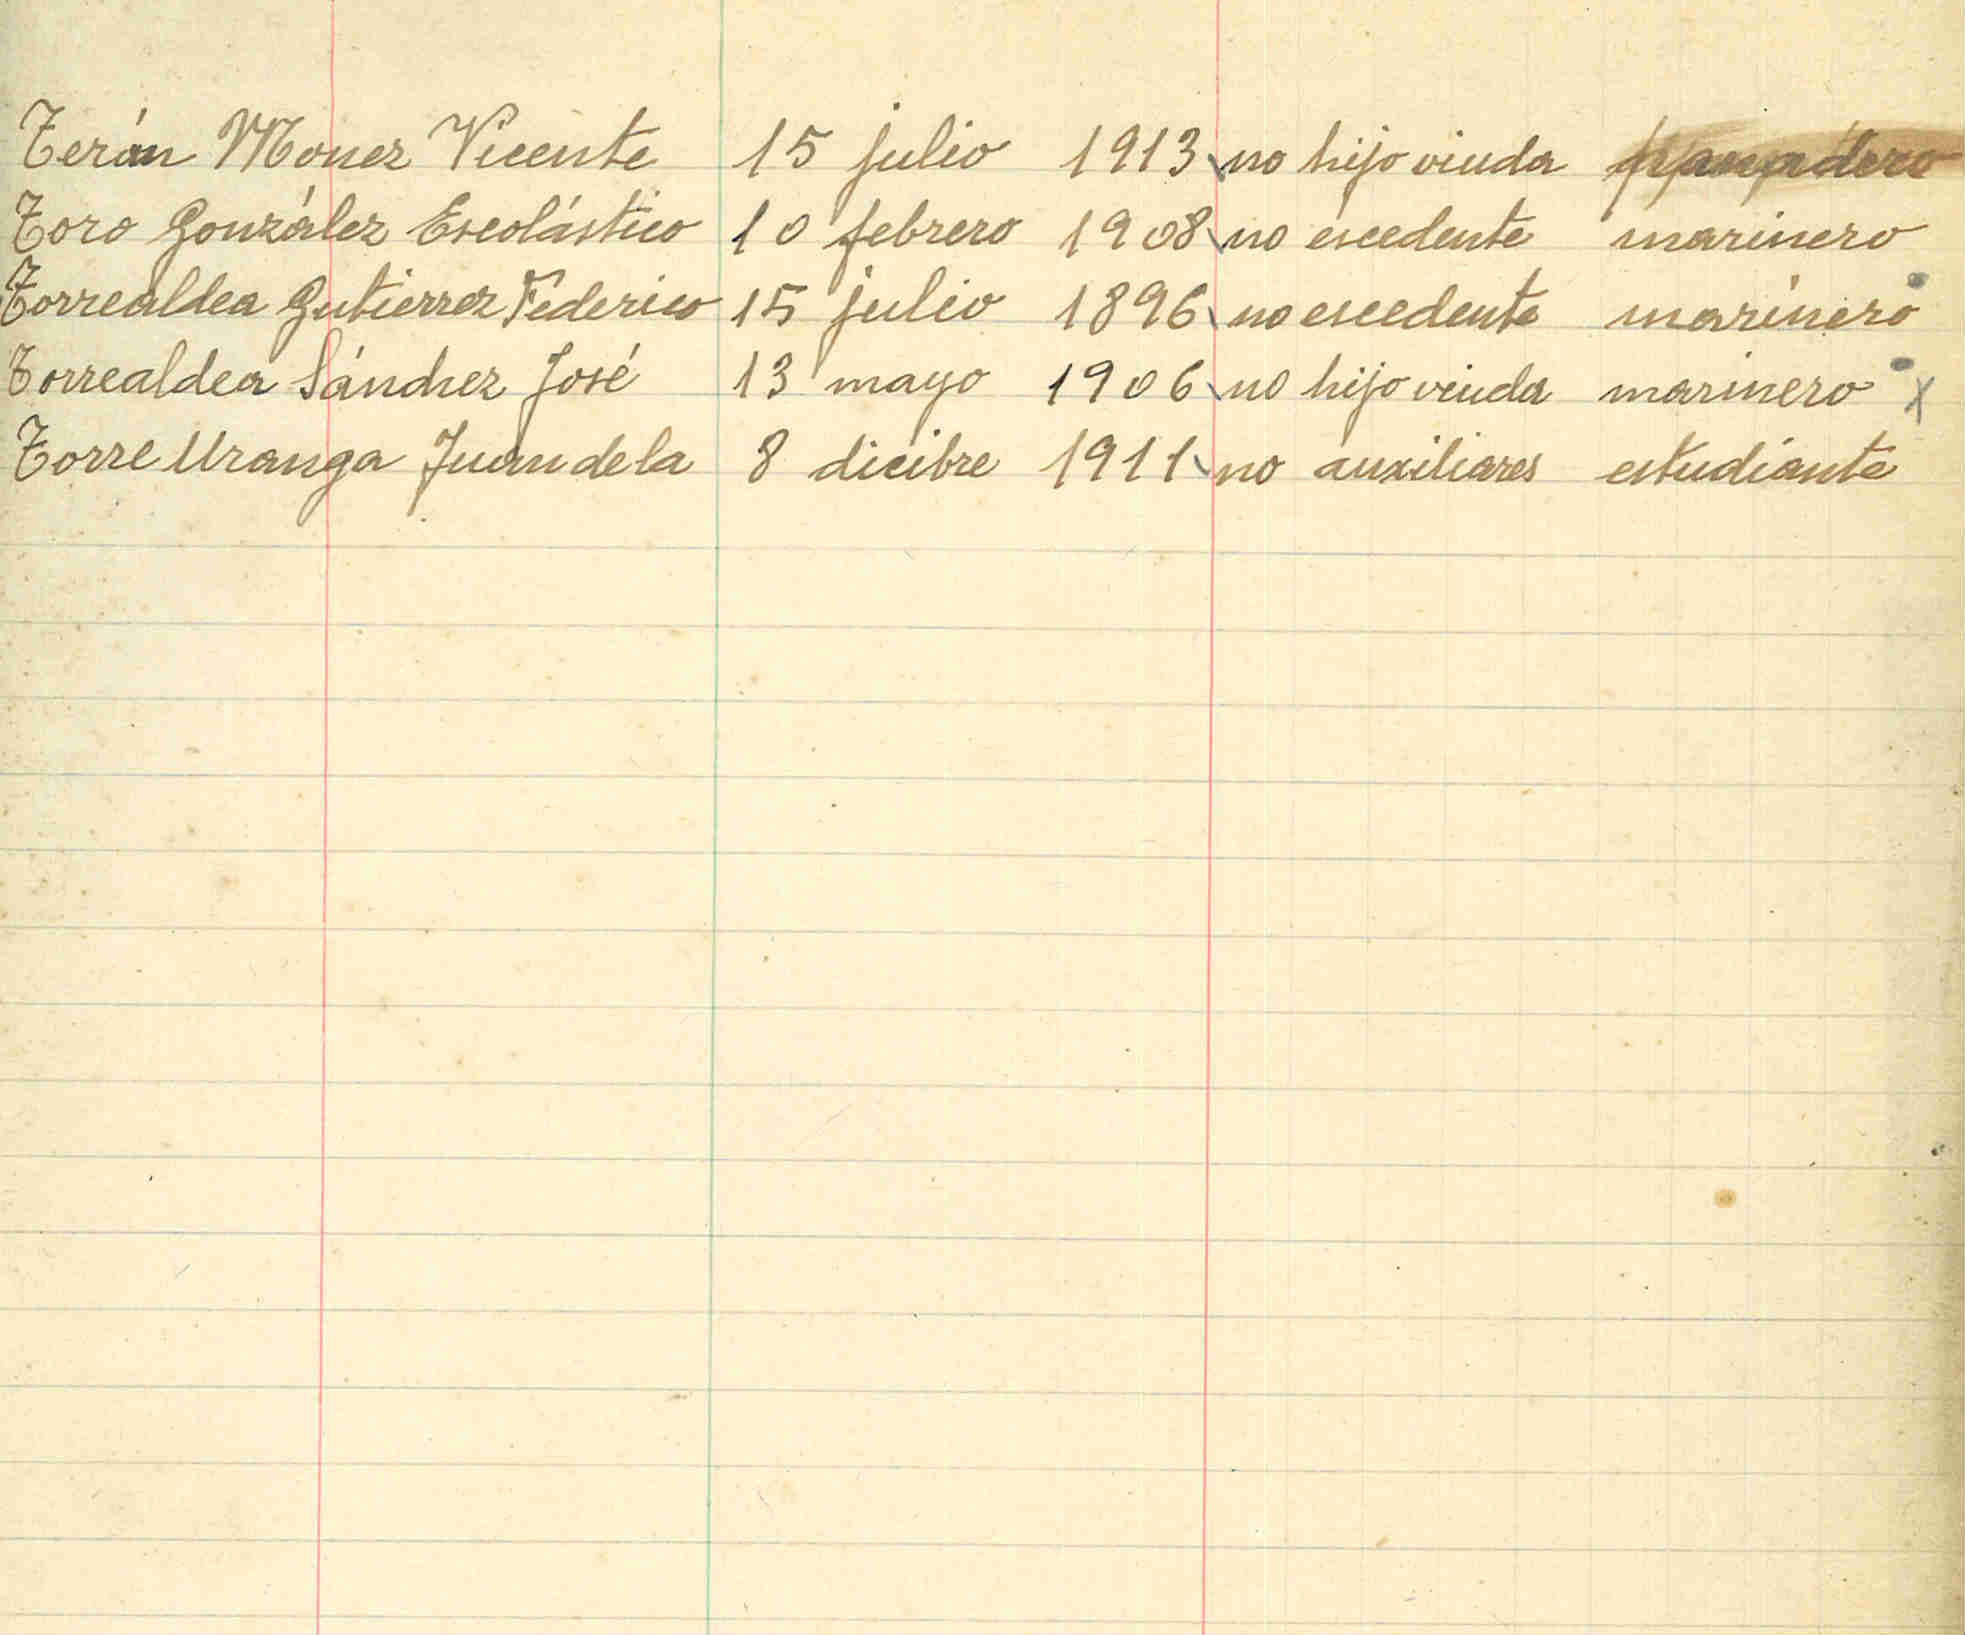 Terán Moner Vicente 15 julio 1913 no hijo viuda panadero
Toro González Escolástico 10 febrero 1908 no escedente marinero
Torrealdea Gutierrez Federico 15 julio 1896 no escedente marinero
Torrealdea Sánchez José 13 mayo 1906 no hijo viuda marinero x
Torre Uranga Juan de la 8 dicibre 1911 no auxiliares estudiante